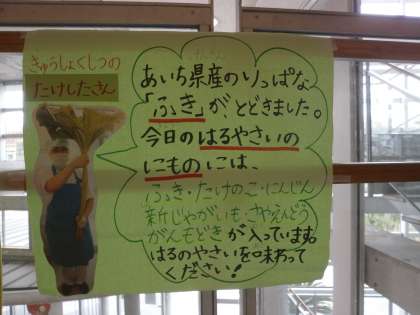 きゅうしょくしつの
たけしたさん
あいち県産のりっぱな
「ふき」が、とどきました。
今日のはるやさいの
にものには、
ふき・たけのこ・にんじん
新じゃがいも・さやえんどう
がんもどきが入っています。
はるのやさいを味わって
ください!